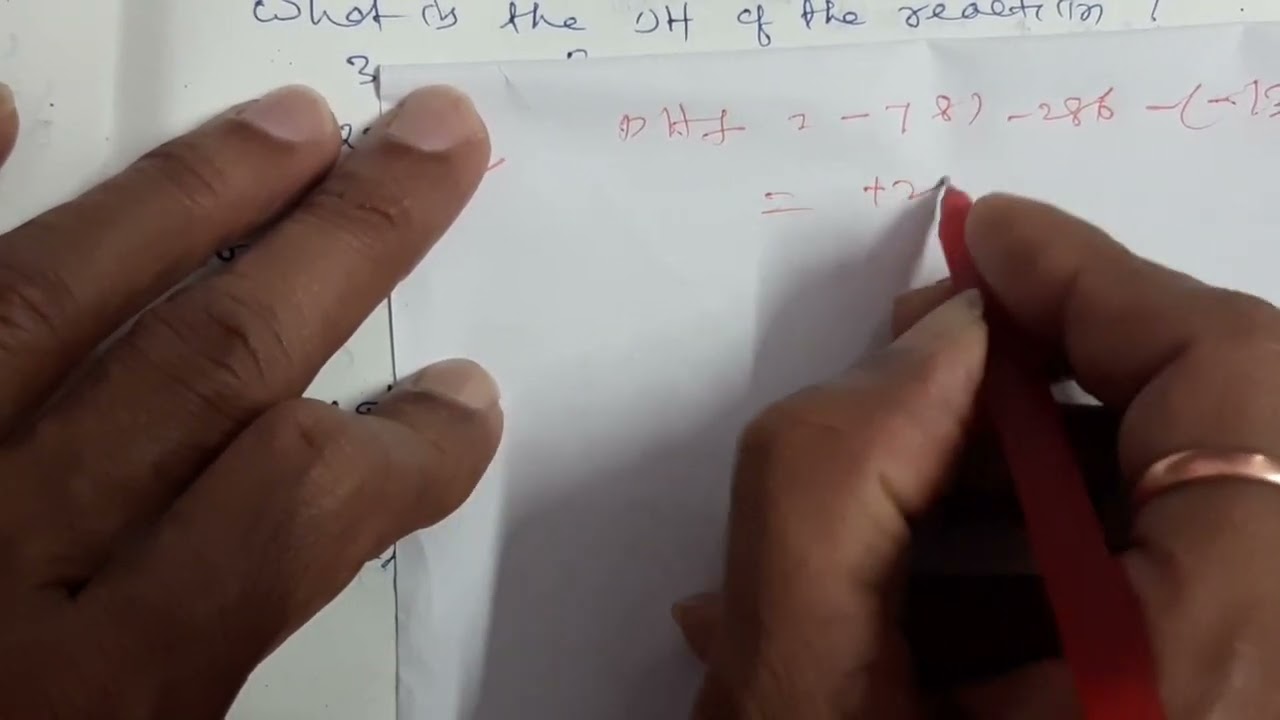 What is the DH of the reaction ?
3
DHf = - 787 - 286 - (-13
= +2